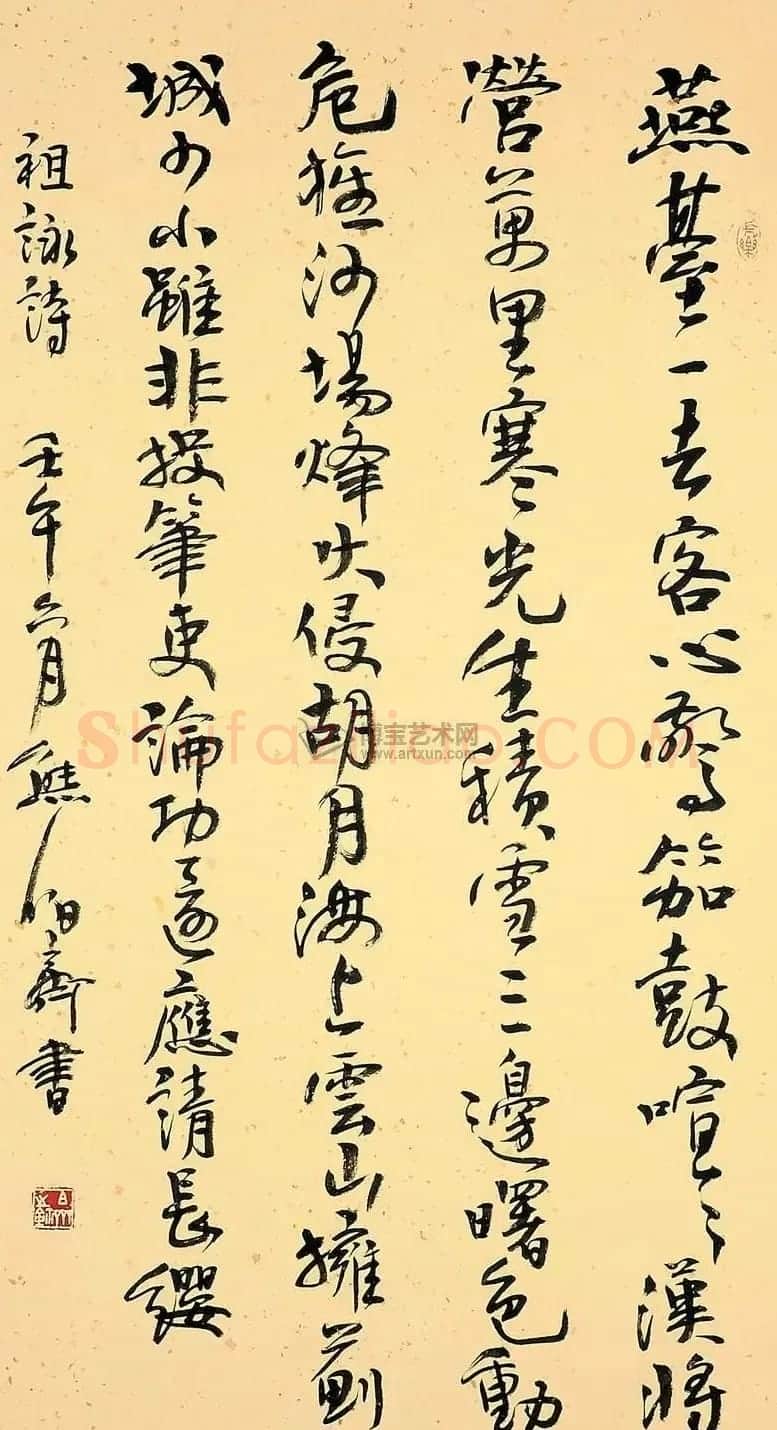 燕臺一去客心驚笳鼓喧〻漢將
營萬里寒光生積雪三邊曙色動
危旌沙場烽火侵胡月海上雲山擁薊
城少小雖非投筆吏論功還應請長纓
祖詠詩 壬午六月熊伯齊書
博宝艺术网
www.artxun.com